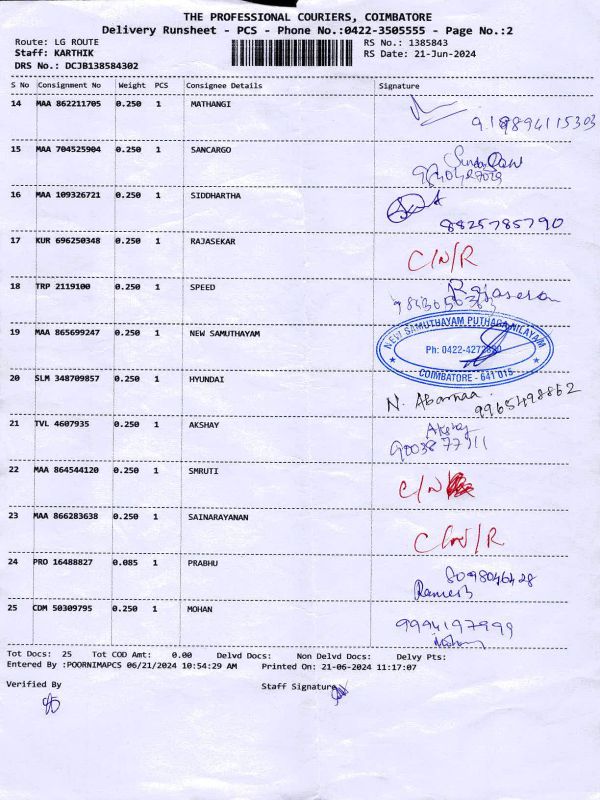 THE PROFESSIONAL COURIERS, COIMBATORE
Delivery Runsheet - PCS - Phone No.:0422-3505555 - Page No.:2
Route: LG ROUTE RS No.: 1385843
Staff: KARTHIK RS Date: 21-Jun-2024
DRS No.: DCJB138584302
S No Consignment No Weight PCS Consignee Details Signature
14 MAA 862211705 0.250 1 MATHANGI
15 MAA 704525904 0.250 1 SANCARGO
16 MAA 109326721 0.250 1 SIDDHARTHA
8825785790
17 KUR 696250348 0.250 1 RAJASEKAR C/N/R
18 TRP 2119100 0.250 1 SPEED Rajasekar
NEW SAMUTHAYAM PUTHAGA NILAYAM
19 MAA 865699247 0.250 1 NEW SAMUTHAYAM
Ph: 0422-4272880
COIMBATORE - 641 015
20 SLM 348709857 0.250 1 HYUNDAI N. Abarnaa
9965498862
21 TVL 4607935 0.250 1 AKSHAY Akshay
9003877911
22 MAA 864544120 0.250 1 SMRUTI C/N
23 MAA 866283638 0.250 1 SAINARAYANAN
24 PRO 16488827 0.085 1 PRABHU 8098046428
Ramesh
25 CDM 50309795 0.250 1 MOHAN 9994197999
Mohan
Tot Docs: 25 Tot COD Amt: 0.00 Delvd Docs: Non Delvd Docs: Delvy Pts:
Entered By :POORNIMAPCS 06/21/2024 10:54:29 AM Printed On: 21-06-2024 11:17:07
Verified By Staff Signature